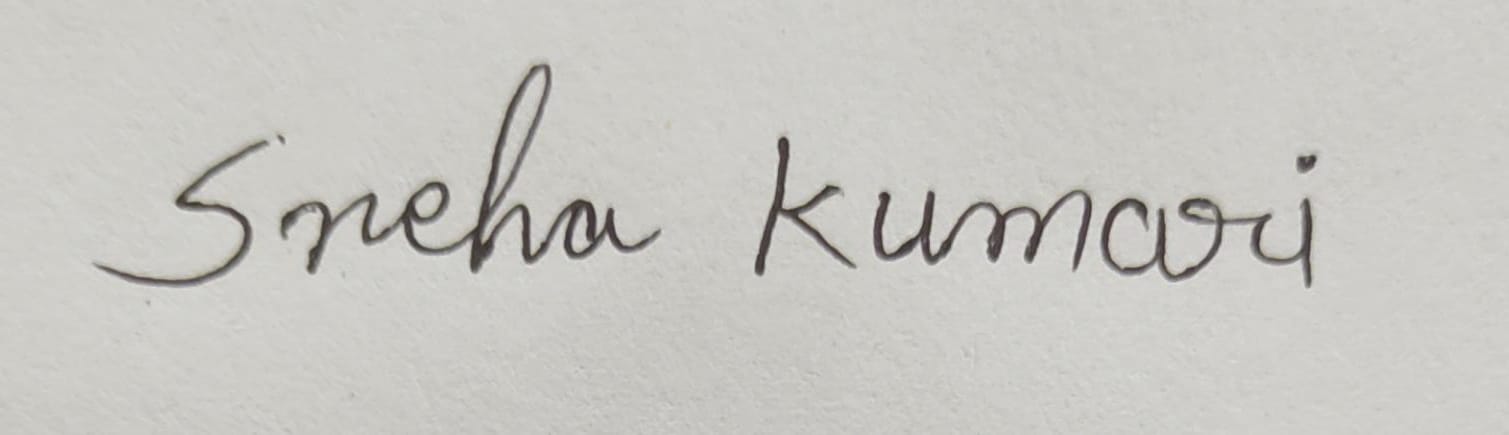 Sneha Kumari